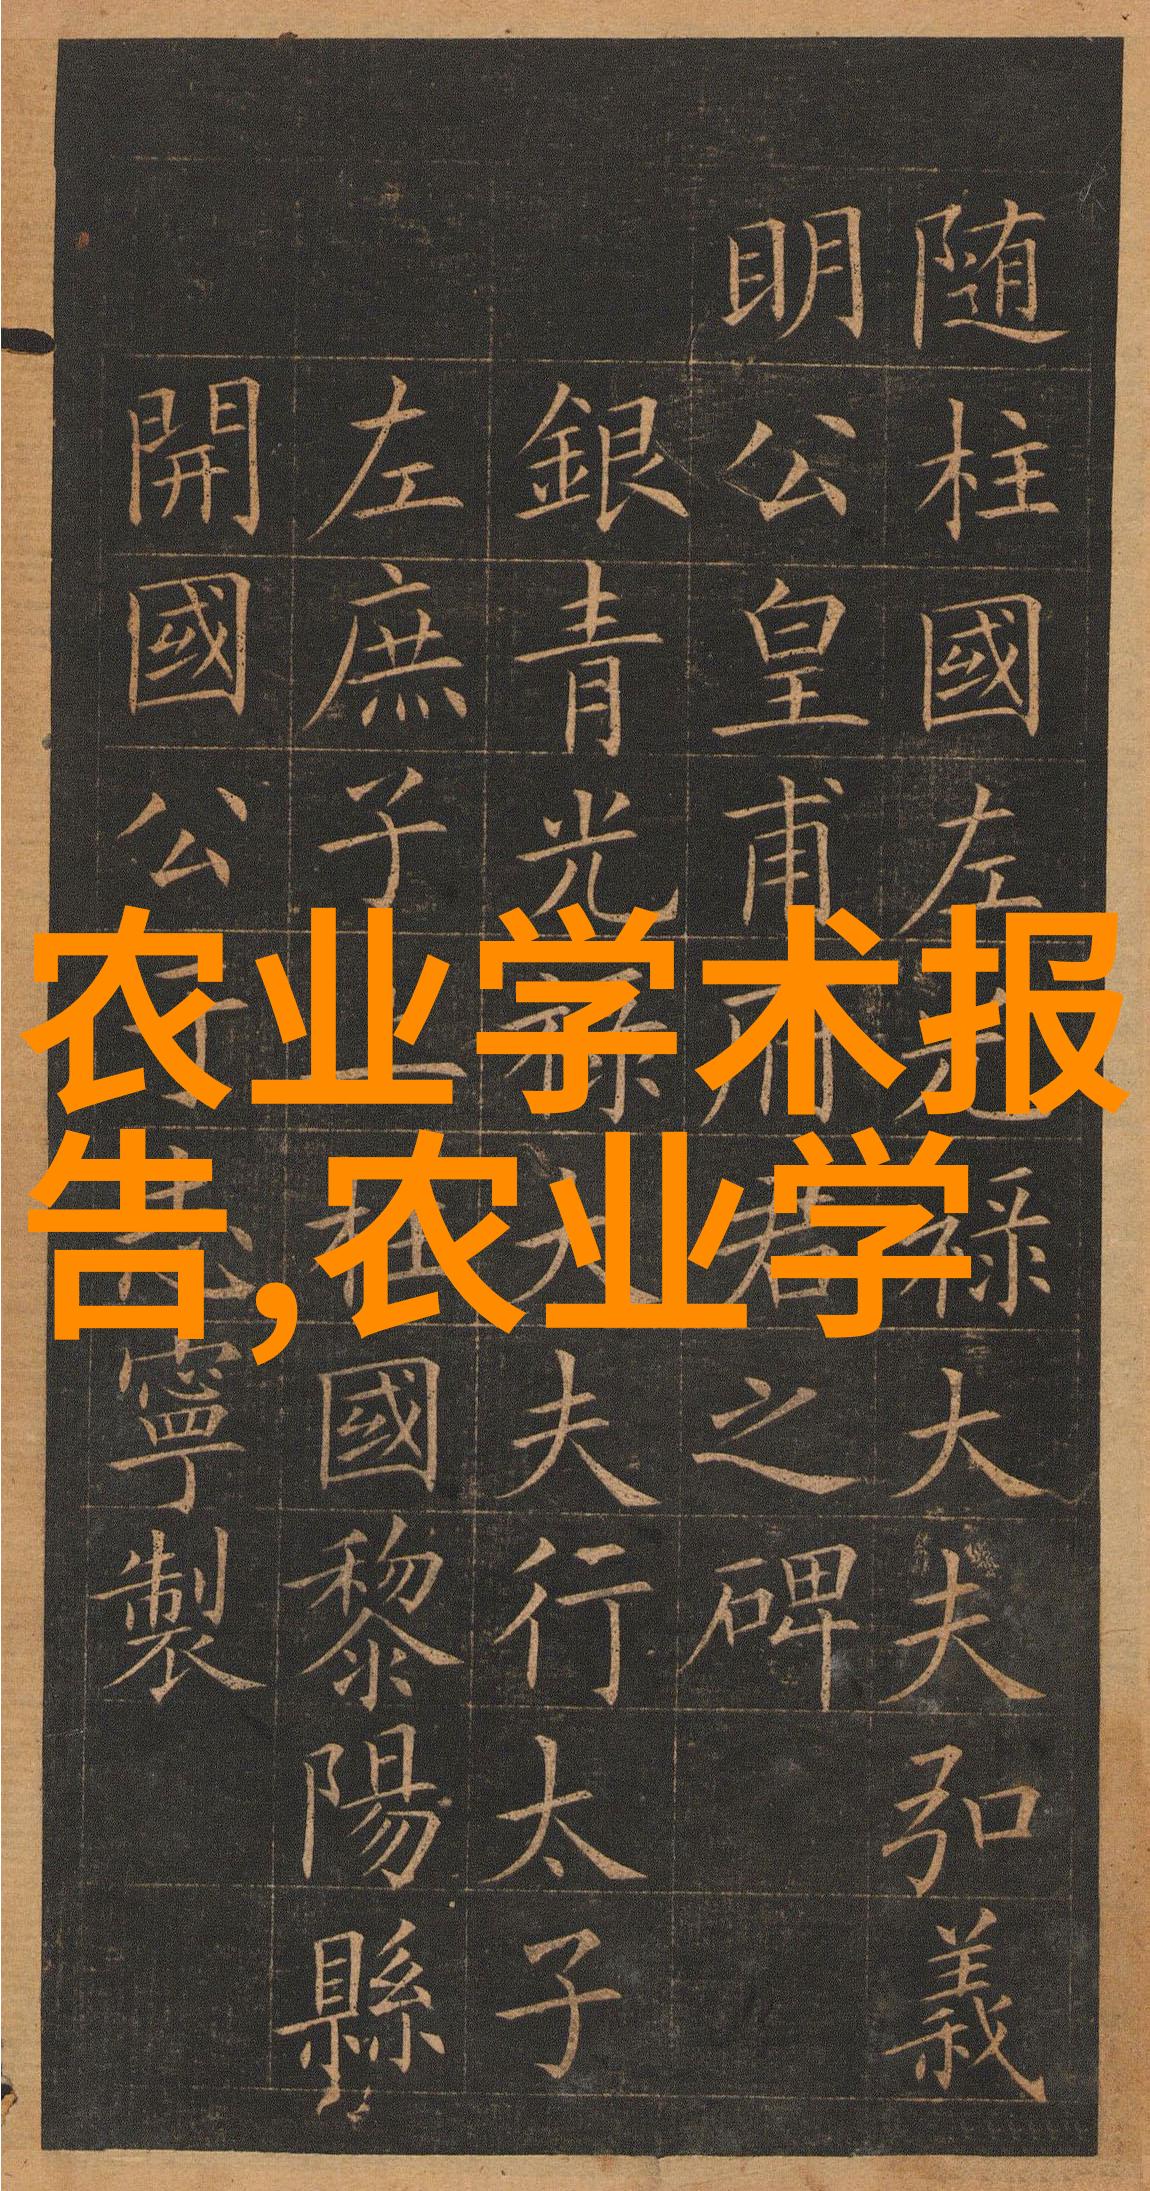 农业学术报
告,农业学
随柱國左光禄大夫弘義
明公皇甫府君之碑
銀青光禄大夫行太子
左庶子上柱國黎陽縣
開國公于志寧製